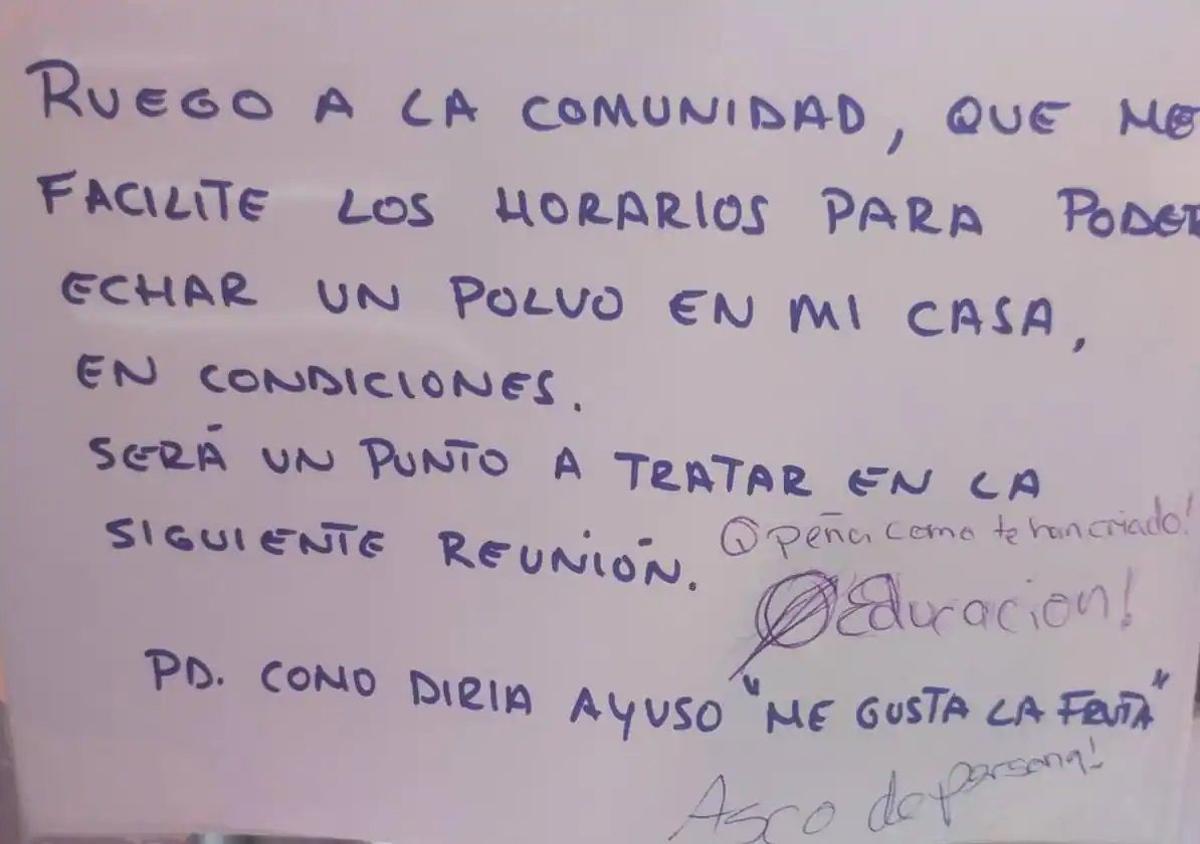 RUEGO A LA COMUNIDAD, QUE ME
FACILITE LOS HORARIOS PARA PODER
ECHAR UN POLVO EN MI CASA,
EN CONDICIONES.
SERÁ UN PUNTO A TRATAR EN LA
SIGUIENTE REUNIÓN.
Q peña como te han criado!
Educacion!
PD. COMO DIRIA AYUSO "ME GUSTA LA FRUTA"
Asco de persona!